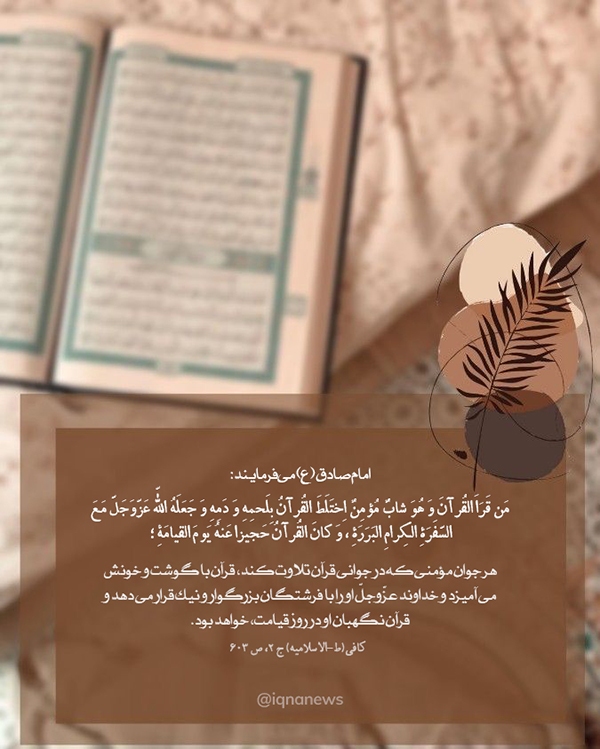 امام صادق (ع) می‌فرمایند:
مَن قَرَأَ القُرآنَ وَ هُوَ شابٌ مُؤمِنٌ اِختَلَطَ القُرآنُ بِلَحمِهِ وَ دَمِهِ وَ جَعَلَهُ اللّه عَزَّوَجَلَّ مَعَ
السَّفَرَةِ الكِرامِ البَرَرَةِ ، وَ كانَ القُرآنُ حَجيزا عَنهُ يَومَ القيامَةِ ؛
هر جوان مؤمنى كه در جوانى قرآن تلاوت كند، قرآن با گوشت و خونش
مى آميزد و خداوند عزّوجلّ او را با فرشتگان بزرگوار و نيك قرار مى دهد و
قرآن نگهبان او در روز قيامت، خواهد بود.
کافی (ط-الاسلامیه) ج ۲، ص ۶۰۳
@iqnanews